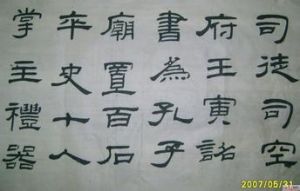 司徒司空
府王寅詔
書為孔子
廟置百石
卒史十人
掌主禮器
2007/05/31